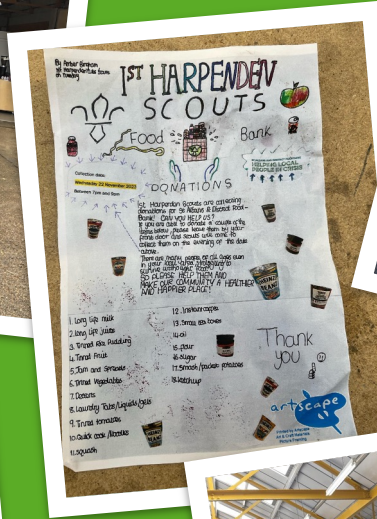 By Amber Bingham
1st Harpenden
on Tuesday
1ST HARPENDEN
SCOUTS
Food Bank
Collection date:
Wednesday 22 November 2023
Between 7pm and 9pm
HELPING LOCAL
PEOPLE IN CRISIS
DONATIONS
1st Harpenden Scouts are collecting
donations for St Albans & District Food
Bank! CAN YOU HELP US?
If you are able to donate a couple of the
items below, please leave them by your
front door and scouts will come to
collect them on the evening of the date
above.
There are many people of all ages even
in your local area struggling to
survive without food
SO PLEASE HELP THEM AND
MAKE OUR COMMUNITY A HEALTHIER
AND HAPPIER PLACE!
1. Long life milk
2. long life juice
3. Tinned Rice Pudding
4. Tinned Fruit
5. Jam and Spreads
6. Tinned Vegetables
7. Deserts
8. Laundry Tabs/Liquids/gels
9. Tinned tomatoes
10. Quick cook /Noodles
11. squash
12. Instant coffee
13. Small tea boxes
14. oil
15. flour
16. sugar
17. Smash/packet potatoes
18. ketchup
Thank
you
HEINZ
BEANZ
artscape
Printed by Artscape
Art & Craft Materials
Picture Framing